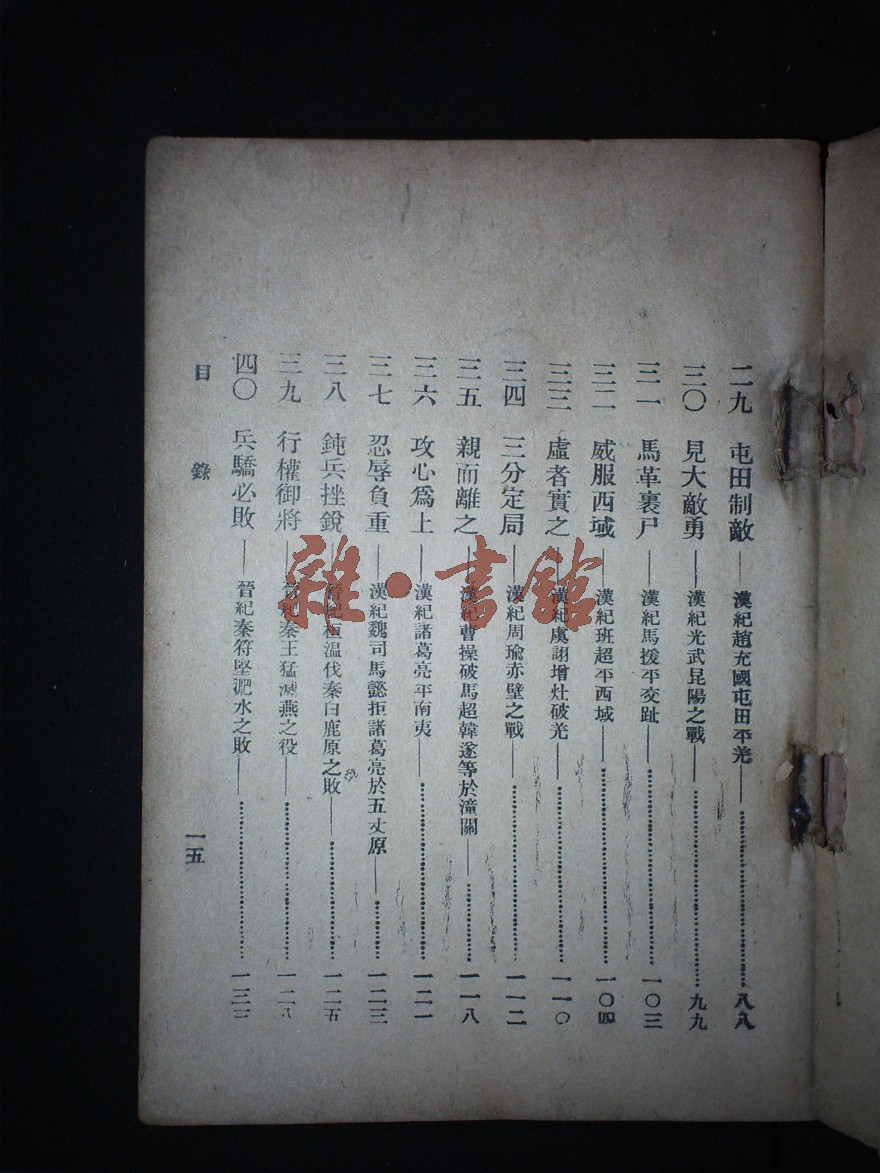 二九 屯田制敵——漢紀趙充國屯田平羌——八八
三〇 見大敵勇——漢紀光武昆陽之戰——九九
三一 馬革裹尸——漢紀馬援平交趾——一〇三
三二 威服西域——漢紀班超平西域——一〇四
三三 虛者實之——漢紀虞詡增灶破羌——一一〇
三四 三分定局——漢紀周瑜赤壁之戰——一一二
三五 親而離之——漢紀曹操破馬超韓遂等於潼關——一一八
三六 攻心爲上——漢紀諸葛亮平南夷——一二一
三七 忍辱負重——漢紀魏司馬懿拒諸葛亮於五丈原——一二三
三八 鈍兵挫銳——晉紀桓温伐秦白鹿原之敗——一二五
三九 行權御將——晉紀秦王猛滅燕之役——一二八
四〇 兵驕必敗——晉紀秦符堅淝水之敗——一三三
目錄
一五
雜·書館